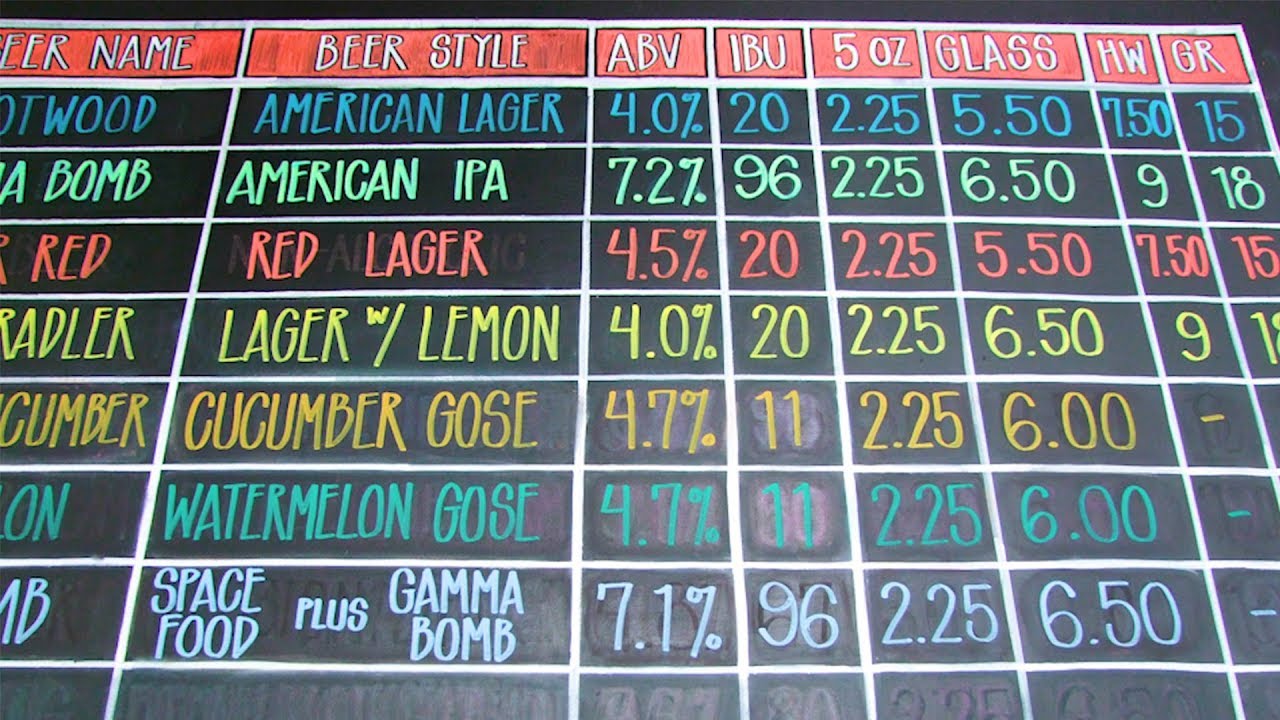 EER NAME BEER STYLE ABV IBU 5 OZ GLASS HW GR
OTWOOD AMERICAN LAGER 4.0% 20 2.25 5.50 7.50 15
A BOMB AMERICAN IPA 7.2% 96 2.25 6.50 9 18
R RED RED LAGER 4.5% 20 2.25 5.50 7.50 15
RADLER LAGER W/ LEMON 4.0% 20 2.25 6.50 9
CUMBER CUCUMBER GOSE 4.7% 11 2.25 6.00 -
LON WATERMELON GOSE 4.7% 11 2.25 6.00 -
MB SPACE FOOD PLUS GAMMA BOMB 7.1% 96 2.25 6.50 -